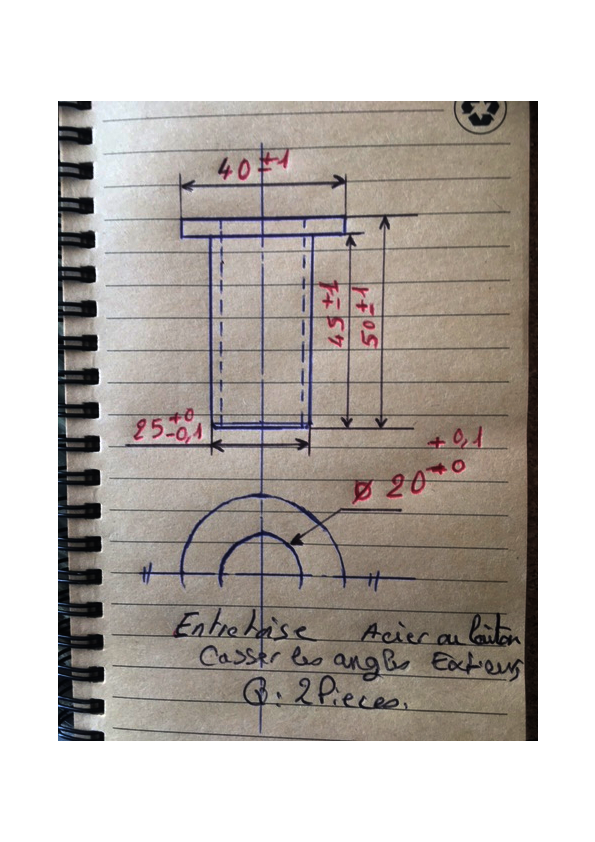 40 ±1
45 ±1
50 ±1
25 +0
-0,1
+0,1
Ø 20 +0
Entretoise Acier ou laiton
Casser les angles Exterieurs
Q: 2 Pieces.